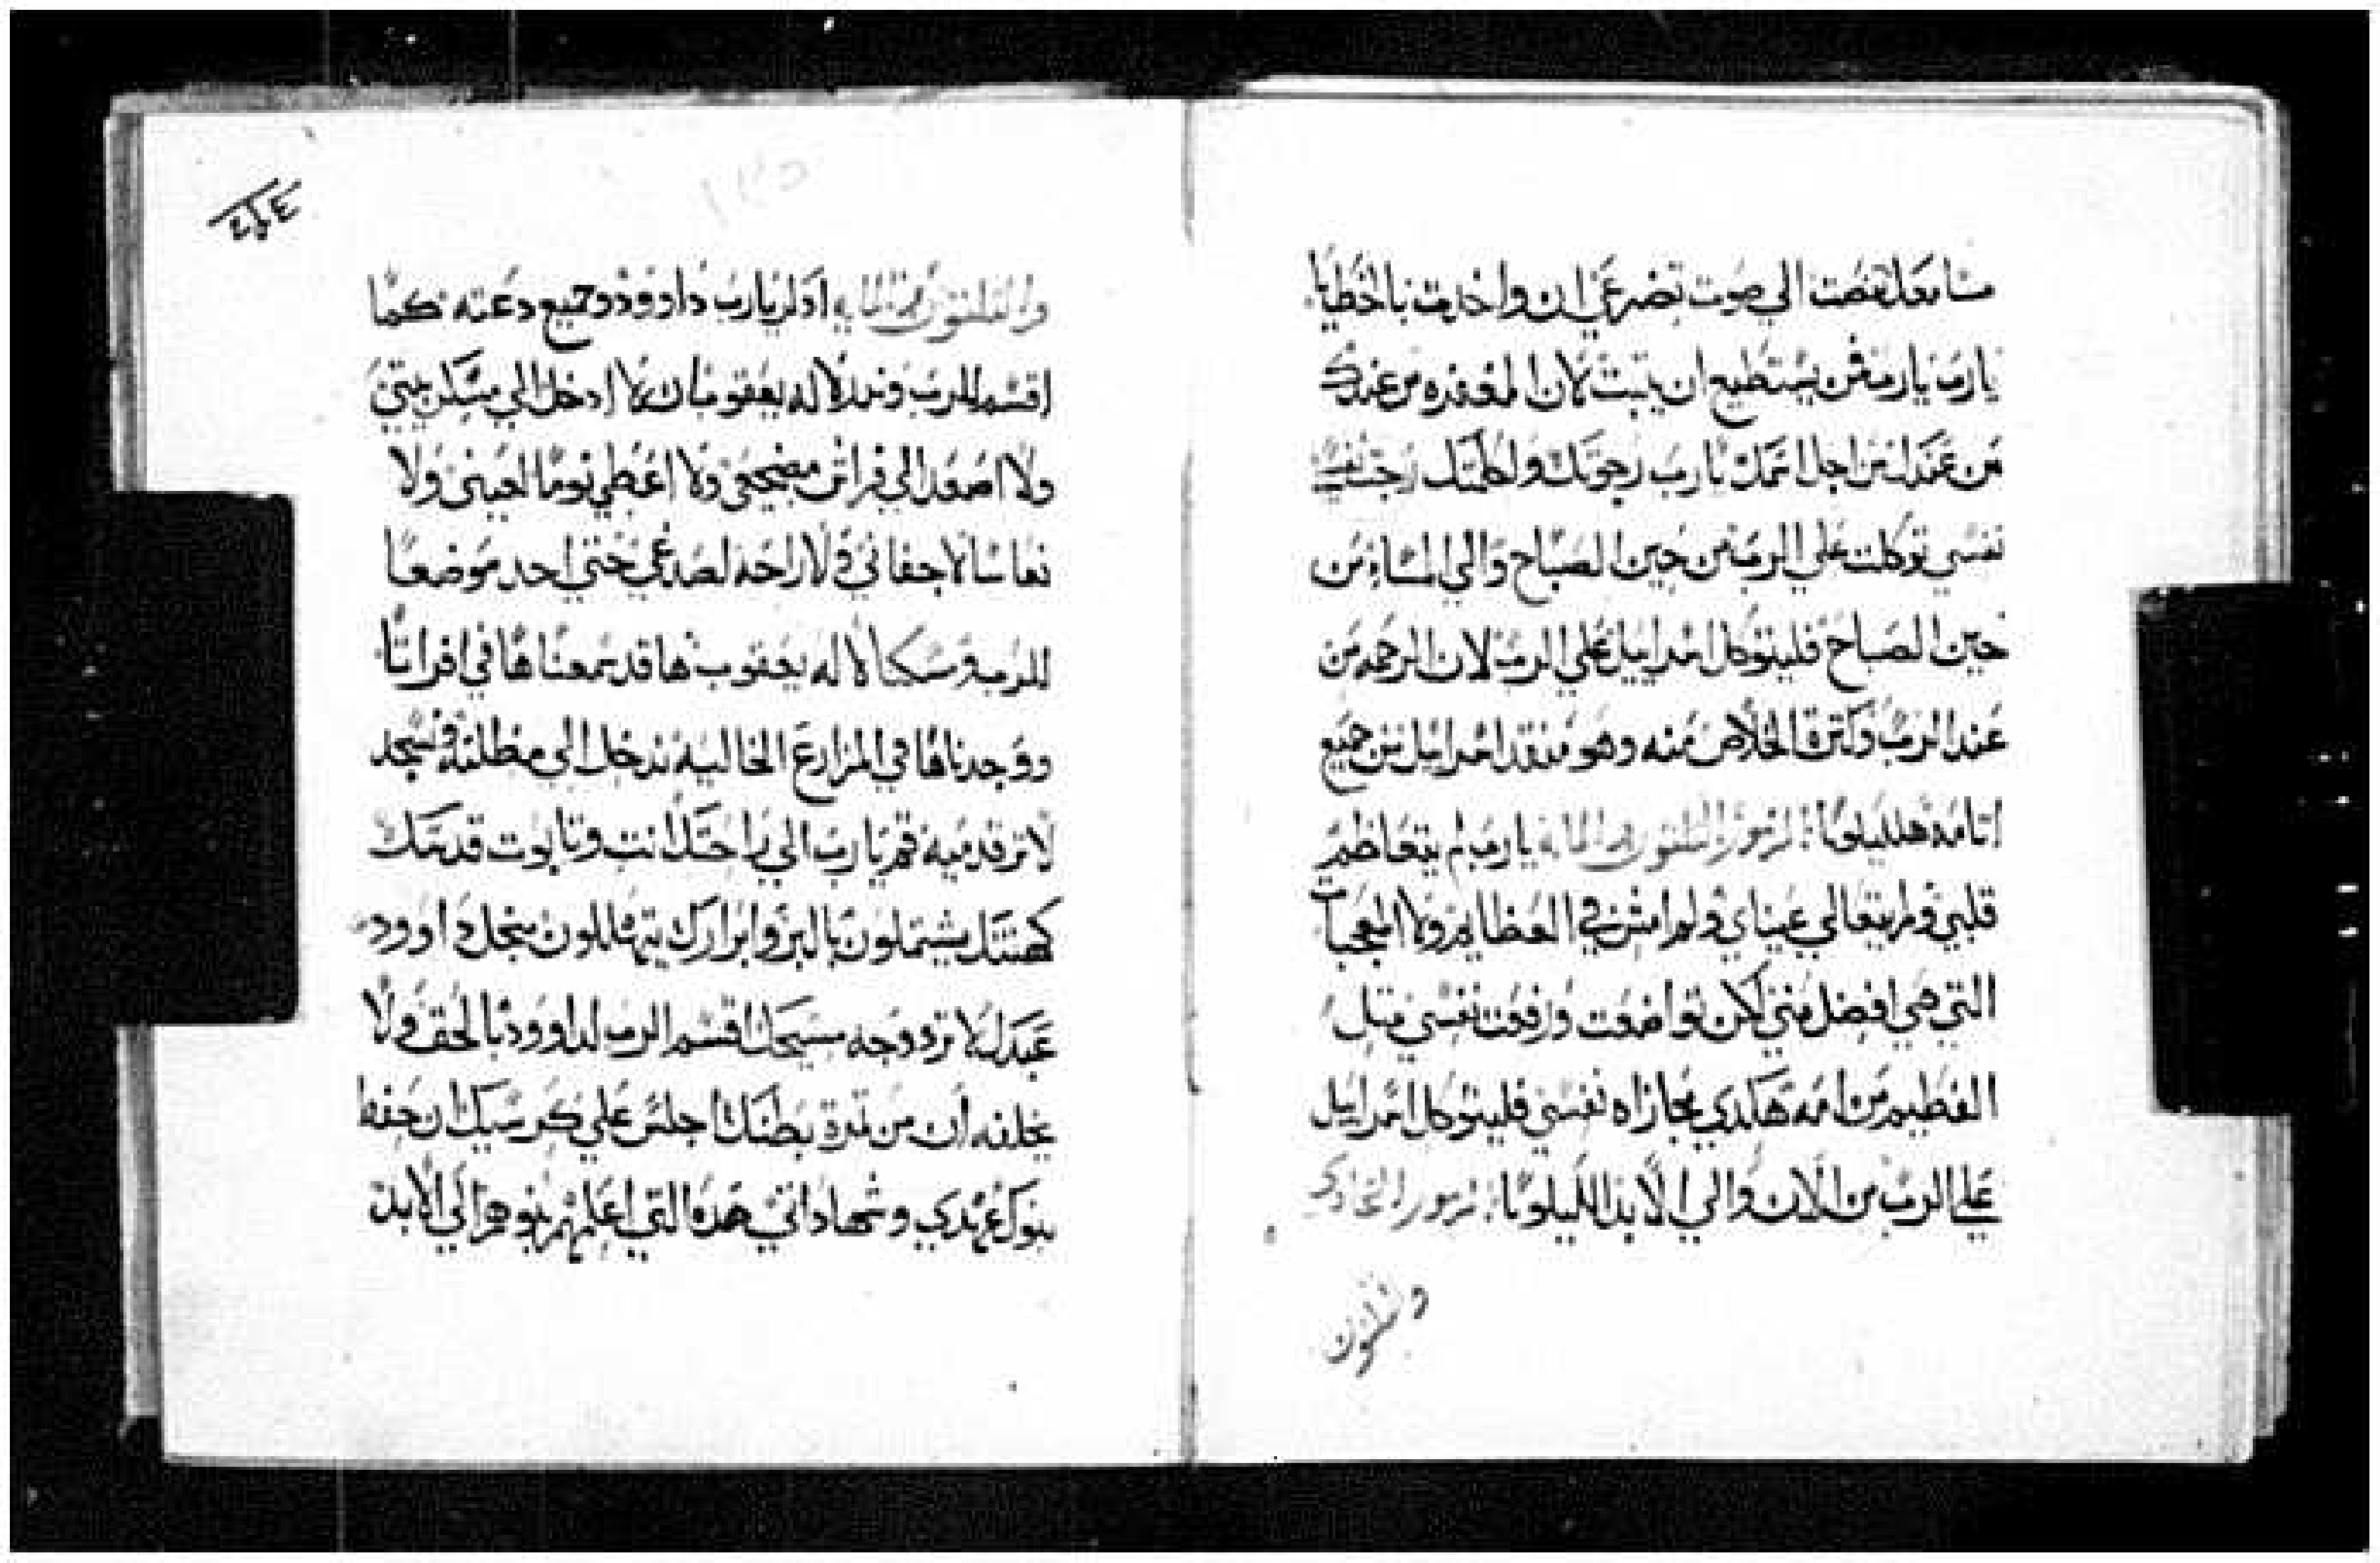 مسامعك تنصت الي صوت تضرعي ان واخدت باالخطايا
يارب يارب فمن يستطيع ان يتبت لان المغفره من عندك
من عندك من اجل اسمك يارب رجوتك ولكلمتك رجت نفسي
نفسي توكلت علي الرب من حين الصباح والي المساء من
حين الصباح فليتوكل اسراييل علي الرب لان الرحمه من
عند الرب وكترة الخلاص منه وهو منقد اسراييل من جميع
اتامه هلليلويا المزمور التلتون بعد المايه يارب لم يتعاظم
قلبي ولم يتعالي عيناي ولم امش في العظايم ولا المعجبات
التي هي افضل مني لكن تواضعت ورفعت نفسي متل
الفطيم من امه هكدي مجازاه نفسي فليتوكل اسراييل
علي الرب من الان والي الابد الليلويا مزمور احادي
وتلتون
والتلتون بعد المايه ادكر يارب داوود وجميع دعته كما
اقسم للرب وندر لاله يعقوب ان لا ادخل الي مسكن بيتي
ولا اصعد الي فراش مضجعي ولا اعطي نوما لعيني ولا
نعاسا لاجفاني ولا راحه لصدغي حتي اجد موضعا
للرب ومسكنا لاله يعقوب ها قد سمعناها في افراتا
ووجدناها في المزارع الخاليه ندخل الي مظلته ونسجد
لاتر قدميه قم يارب الي راحتك انت وتابوت قدسك
كهنتك يشتملون باالبر وابرارك يتهللون من اجل داوود
عبدك لا ترد وجه مسيحك اقسم الرب لداوود باالحق ولا
يخلفه ان من تمرة بطنك اجلس علي كرسيك ان حفظ
بنوك عهدي وشهاداتي هده التي اعلمهم بنوهم الي الابد